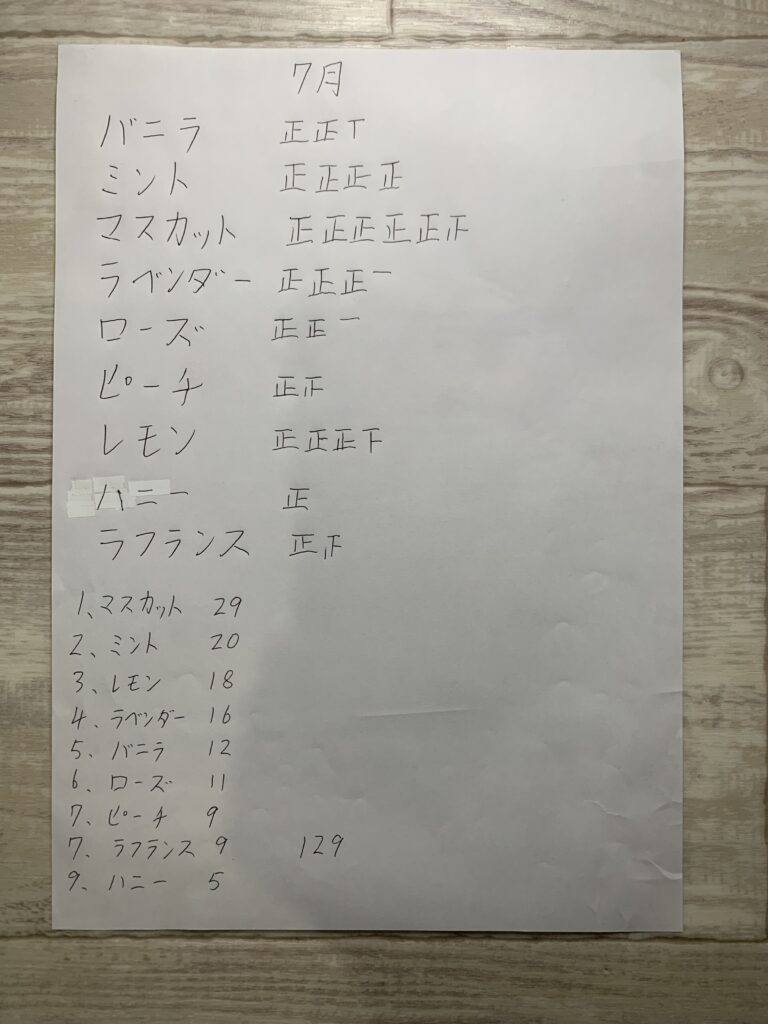 7月
バニラ 正正T
ミント 正正正正
マスカット 正正正正正𤴓
ラベンダー 正正正一
ローズ 正正一
ピーチ 正𤴓
レモン 正正正下
ハニー 正
ラフランス 正𤴓
1、マスカット 29
2、ミント 20
3、レモン 18
4、ラベンダー 16
5、バニラ 12
6、ローズ 11
7、ピーチ 9
7、ラフランス 9 129
9、ハニー 5